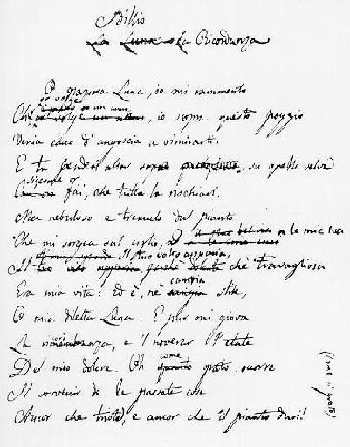 Idillio
La Luna o La Ricordanza
O graziosa Luna, io mi rammento
Che, or volge un anno, io sopra questo poggio
Venia carco d'angoscia a rimirarti:
E tu pendevi allor su quella selva
Siccome or fai, che tutta la rischiari.
Ma nebuloso e tremulo dal pianto
Che mi sorgea sul ciglio, a le mie luci
Il tuo volto apparia, chè travagliosa
Era mia vita: ed è, nè cangia stile,
O mia diletta Luna. E pur mi giova
La rimembranza, e 'l noverar l'etate
Del mio dolore. Oh come grato occorre
Il sovvenir de le passate cose
Ancor che triste, e ancor che il pianto duri!